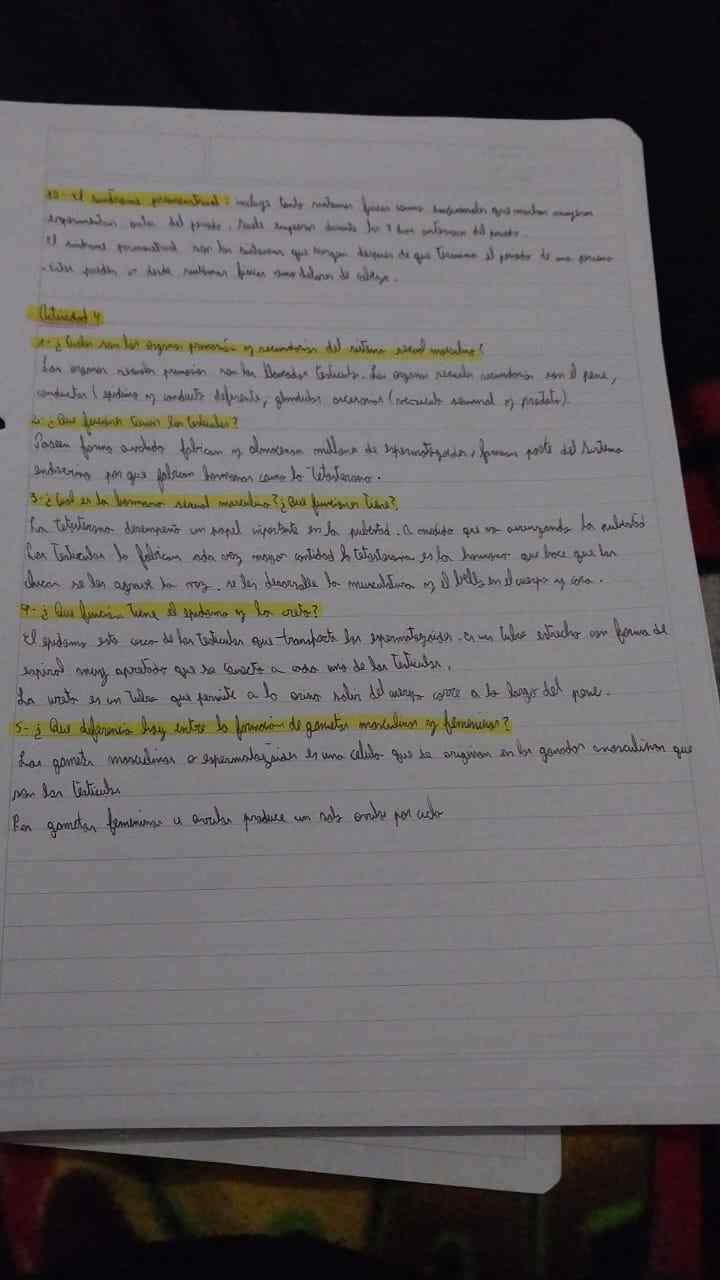 10- El síndrome premenstrual: incluye tanto síntomas físicos como emocionales que muchas mujeres
experimentan antes del periodo. Suele empezar durante los 7 días anteriores del periodo.
El síndrome son los síntomas que tengan después de que termina el periodo de una persona
pueden síntomas físicos como dolores de cabeza.
Actividad 4
1- ¿Cuáles son los órganos primarios y secundarios del sistema sexual masculino?
Los órganos sexuales primarios son los llamados testículos. Los órganos sexuales secundarios son el pene,
conductos (epidimo y conducto deferente, glándulas accesorias (vesícula seminal y prostata).
2- ¿Que funciones tienen los testículos?
Poseen forma ovalada fabrican y almacenan millones de espermatozoides, forman parte del sistema
endocrino por que fabrican hormonas como la testosterona.
3- ¿Cuál es la hormona sexual masculina? ¿Que funciones tiene?
La desempeña un papel importante en la pubertad. A medida que va avanzando la pubertad
Los testículos la fabrican cada vez mayor cantidad la es la hormona que hace que los
chicos se les agrave la voz, se les desarrolle la musculatura y el bello en el cuerpo y cara.
4- ¿Que función tiene el epidimo y la uretra?
El epidimo esta cerca de los testículos que transporta los espermatozoides. Es un tubo estrecho con forma de
espiral muy apretado que se conecta a cada uno de los testículos.
La ureta es un tubo que permite a la orina salir del cuerpo corre a lo largo del pene.
5- ¿Que diferencia hay entre la formación de gametas masculinas y femeninas?
Las gametas masculinas o espermatozoides es una celula que se originan en las gonadas masculinas que
son los testículos
Las gametas femeninas u ovulos produce un solo ovulo por ciclo